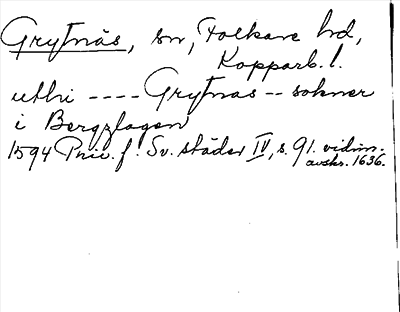 Grytnäs, sn, Folkare hd,
Kopparb. l.
uthi ---- Grytnas -- sokner
i Bergzlagen
1594 Priv. f. Sv. städer IV, s. 91. vidim.
avskr. 1636.